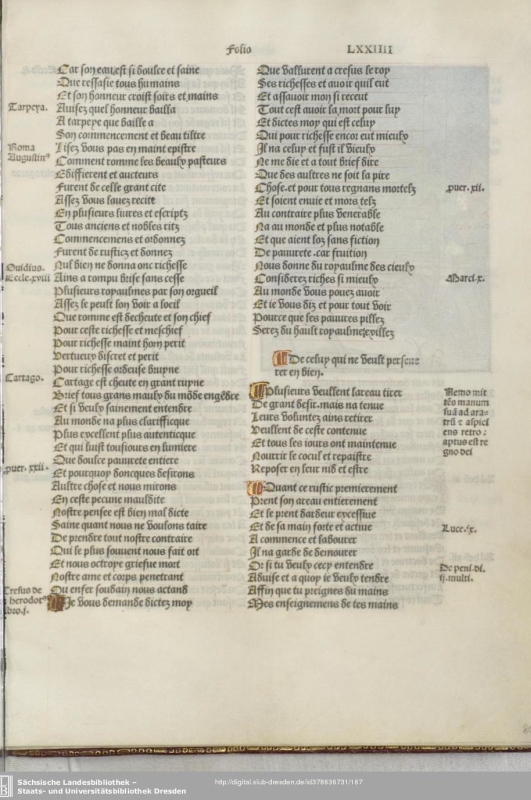 Folio LXXIIII
Car son eau est si doulce et saine
Que ressasie tous humains
Et son honneur croist soirs et mains
Tarpeya.
Auisez quel honneur bailla
A tarpeye que baille a
Son commencement et beau tiltre
Roma
Augustinꝰ
Lisez vous pas en maint epistre
Comment romme les beaulx pasteurs
Edifierent et aucteurs
Furent de celle grant cite
Assez vous lauez recite
En plusieurs liures et escriptz
Tous anciens et nobles ritz
Commencemens et ordonnez
Furent de rusticz et donnez
Ouidius.
Eccle.xviii
Nul bien ne donna onc richesse
Ains a rompu brise sans cesse
Plusieurs royaulmes par son orgueil
Assez le peult lon voir a loeil
Que romme est decheute et son chief
Pour ceste richesse et meschief
Pour richesse maint hom perit
Vertueux discret et perit
Pour richesse orde
Cartago.
Cartage est cheute en grant ruyne
Brief tous grans maulx du mōde engēdre
Et si veulx sainement entendre
Au monde na plus clariffique
Plus excellent plus autenticque
Et qui luist tousiours en lumiere
Que doulce pauurete entiere
puer. xxii.
Et pourquoy doncques desirons
Aultre chose et nous mirons
En ceste pecune mauldite
Nostre pensee est bien mal dicte
Saine quant nous ne voulons taire
De prendre tout nostre contraire
Qui le plus souuent nous fait ort
Et nous octroye griefue mort
Nostre ame et corps penetrant
Cresus de
herodotꝰ
libro.j.
Ou enfer soubdain nous
Je vous demande dictez moy
Que vallurent a cresus le roy
Ses richesses et auoir quil eut
Et assauoir mon si receut
Tout cest auoir la mort pour luy
Et dictes moy qui est celuy
Qui pour richesse encor eut mieulx
Jl na celuy et fust il vieulx
Ne me die et a tout brief dire
Que des aultres ne soit la pire
puer. xii.
Chose.et pour tous regnans mortelz
Et soient enuie et mors telz
Au contraire plus venerable
Na au monde et plus notable
Et que aient loz sans fiction
De pauurete .car fruition
Nous donne du royaulme des cieulx
Marci.x.
Considerez riches si mieulx
Au monde vous pouez auoir
Et ie vous diz et pour tout voir
Pource que les pauures pillez
Serez du hault royaulme exillez
De celuy qui ne veult perseue
rer en bien.
Plusieurs veullent lareau tirer
De grant desir.mais na tenue
Leurs voluntez ains retirer
Veullent de ceste contenue
Et tous les iours ont maintenue
Nourrir le cocul et repaistre
Reposer en leur nid et estre
Nemo mit
tēs manum
suā ad ara-
trū ⁊ aspici
ens retro :
aptus est re
gno dei
Quant ce rustic premierement
Prent son areau entierement
Et se prent hardeur excessiue
Luce.ix.
Et de sa main forte et actiue
A commence et labourer
Jl na garde de demourer
Or si tu veulx cecy entendre
De peni.di.
ij.multi.
Aduise et a quoy ie veulx tendre
Affin que tu preignes du mains
Mes enseignemens de tes mains
Sächsische Landesbibliothek –
Staats- und Universitätsbibliothek Dresden
http://digital.slub-dresden.de/id378836731/167